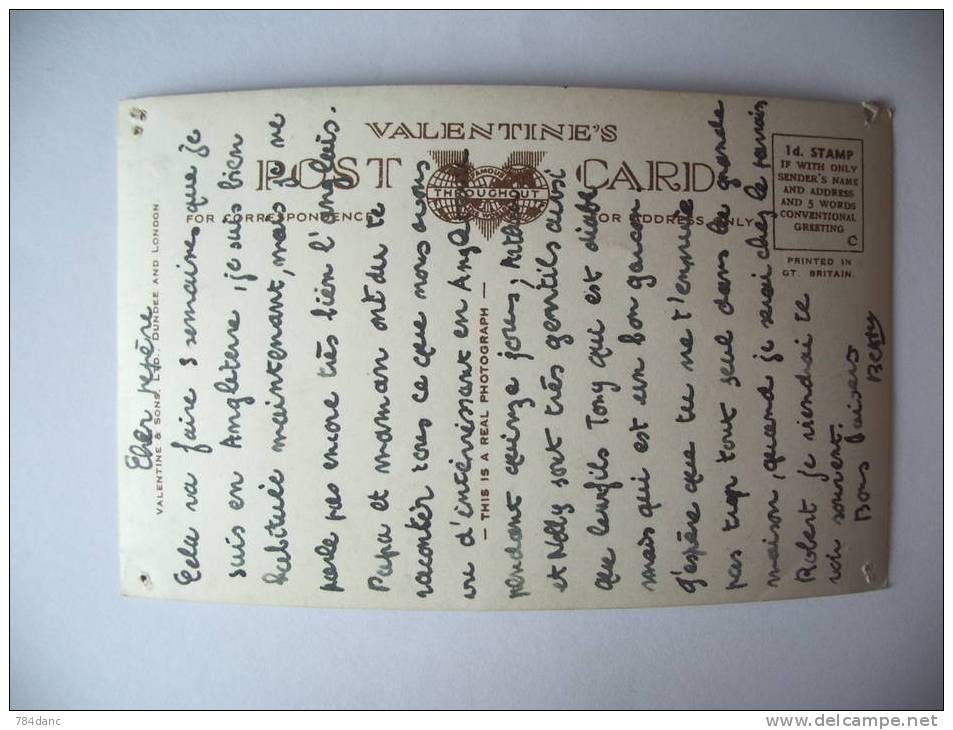 VALENTINE'S
POST CARD
FAMOUS
THROUGHOUT
THE WORLD
FOR CORRESPONDENCE
FOR ADDRESS ONLY
1d. STAMP
IF WITH ONLY
SENDER'S NAME
AND ADDRESS
AND 5 WORDS
CONVENTIONAL
GREETING
PRINTED IN
GT. BRITAIN.
VALENTINE & SONS, LTD., DUNDEE AND LONDON
— THIS IS A REAL PHOTOGRAPH —
Cher pépère
Cela va faire 3 semaines que je
suis en Angleterre, je suis bien
habituée maintenant, mais je ne
parle pas encore très bien l'anglais.
Papa et maman ont du te
raconter tous ce que nous avons
vu d'intéréssant en Angleterre
pendant quinze jours,
et Nelly sont très gentils aussi
que leur fils Tony qui est diable
mais qui est un bon garcon
J'espère que tu ne t'ennuie
pas trop tout seul dans la grande
maison, quand je serai chez le
Robert je viendrai te
voir souvent.
Bons baisers
784danc
www.delcampe.net